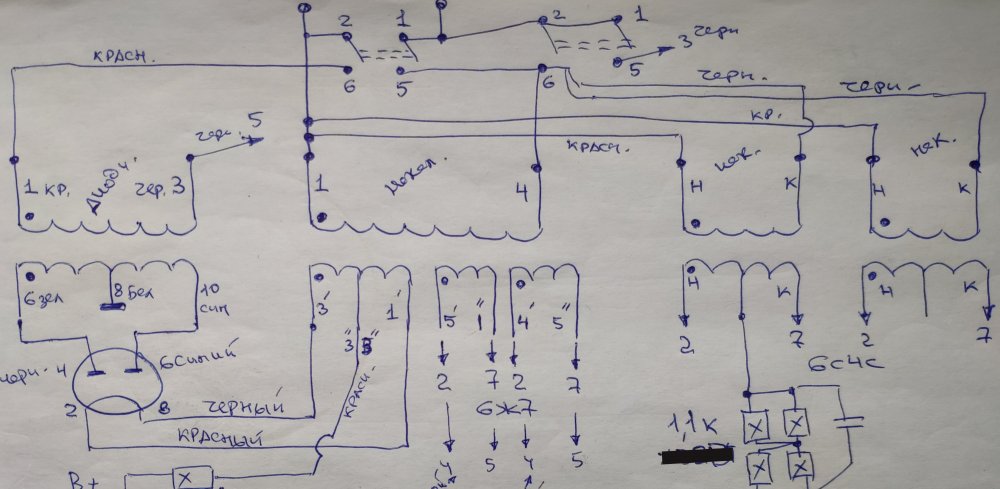 2 1 2 1
3 черн
КРАСН.
6 5 6 5
черн.
черн.
черн. 5
кр.
красн.
1 кр. Диодн. чер. 3
1 4
нак.
н к
нак.
н к
6 зел 8 Бел 10 син
3' 1'
3" 3"
5' 1" 4' 5"
н к
н к
2 7
2 7
6С4С
4 6 синий
2 8
черный
красный
красн.
2 7 2 7
6Ж7
4 5 4 5
1,1 к
В+